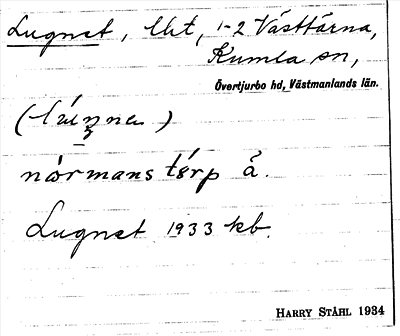 Lugnet, lht, 1-2 Västtärna,
Kumla sn,
Övertjurbo hd, Västmanlands län.
normans torp å.
Lugnet 1933 kb.
HARRY STÅHL 1934